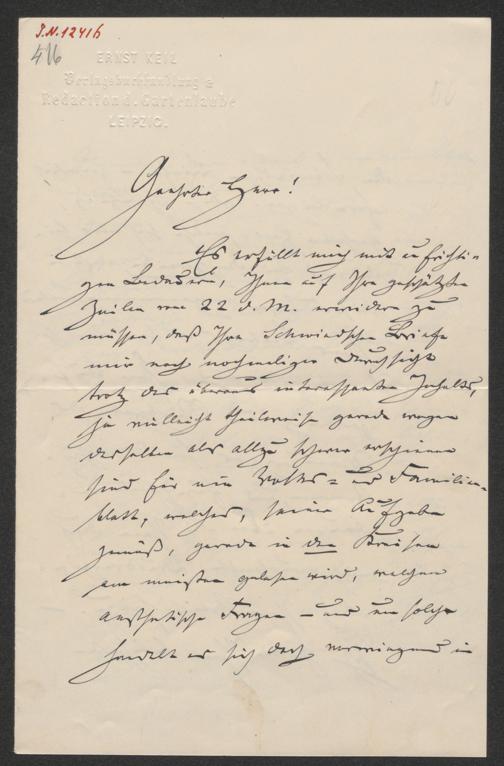 I.N. 12416
416
ERNST KEIL
Verlagsbuchhandlung &
Redaction d. Gartenlaube
LEIPZIG.
Geehrter Herr!
Es erfüllt mich mit aufrichti-
gem Bedauern, Ihnen auf Ihre geschätzten
Zeilen vom 22 d. M. erwidern zu
müssen, daß Ihre Schwindschen Briefe
mir nach nochmaliger Durchsicht
trotz des überaus interessanten Inhalts,
ja vielleicht theilweise gerade wegen
desselben als allzu schwer erschienen
sind für ein Volks- und Familien-
blatt, welches, seiner Aufgabe
gemäß, gerade in den Kreisen
am meisten gelesen wird, welchen
aesthetische Fragen – und um solche
handelt es sich doch vorwiegend in